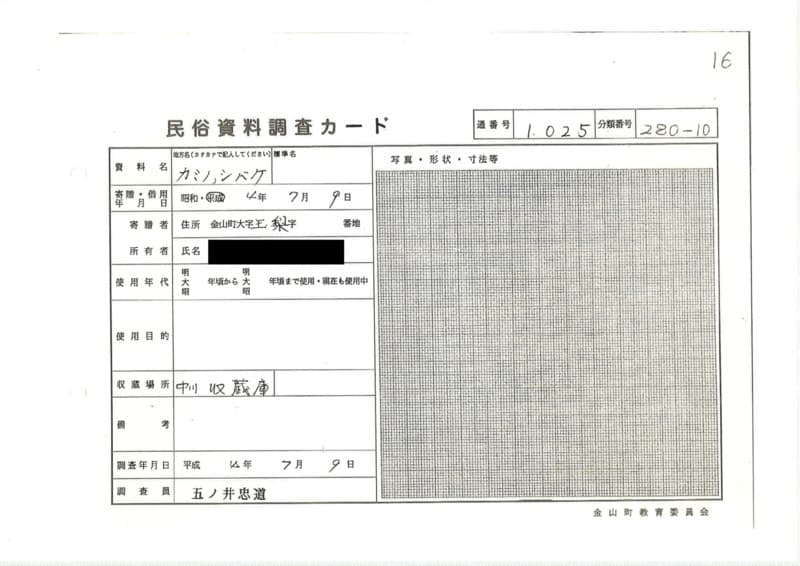 16
民俗資料調査カード
通番号 1.025 分類番号 280-10
資料名 地方名(カタカナで記入してください) 標準名
カミノ
写真・形状・寸法等
寄贈・借用年月日 昭和・平成 4年 7月 9日
寄贈者 住所 金山町大字玉梨字 番地
所有者 氏名
使用年代 明大昭 年頃から 明大昭 年頃まで使用・現在も使用中
使用目的
収蔵場所 中川収蔵庫
備考
調査年月日 平成 4年 7月 9日
調査員 五ノ井忠道
金山町教育委員会